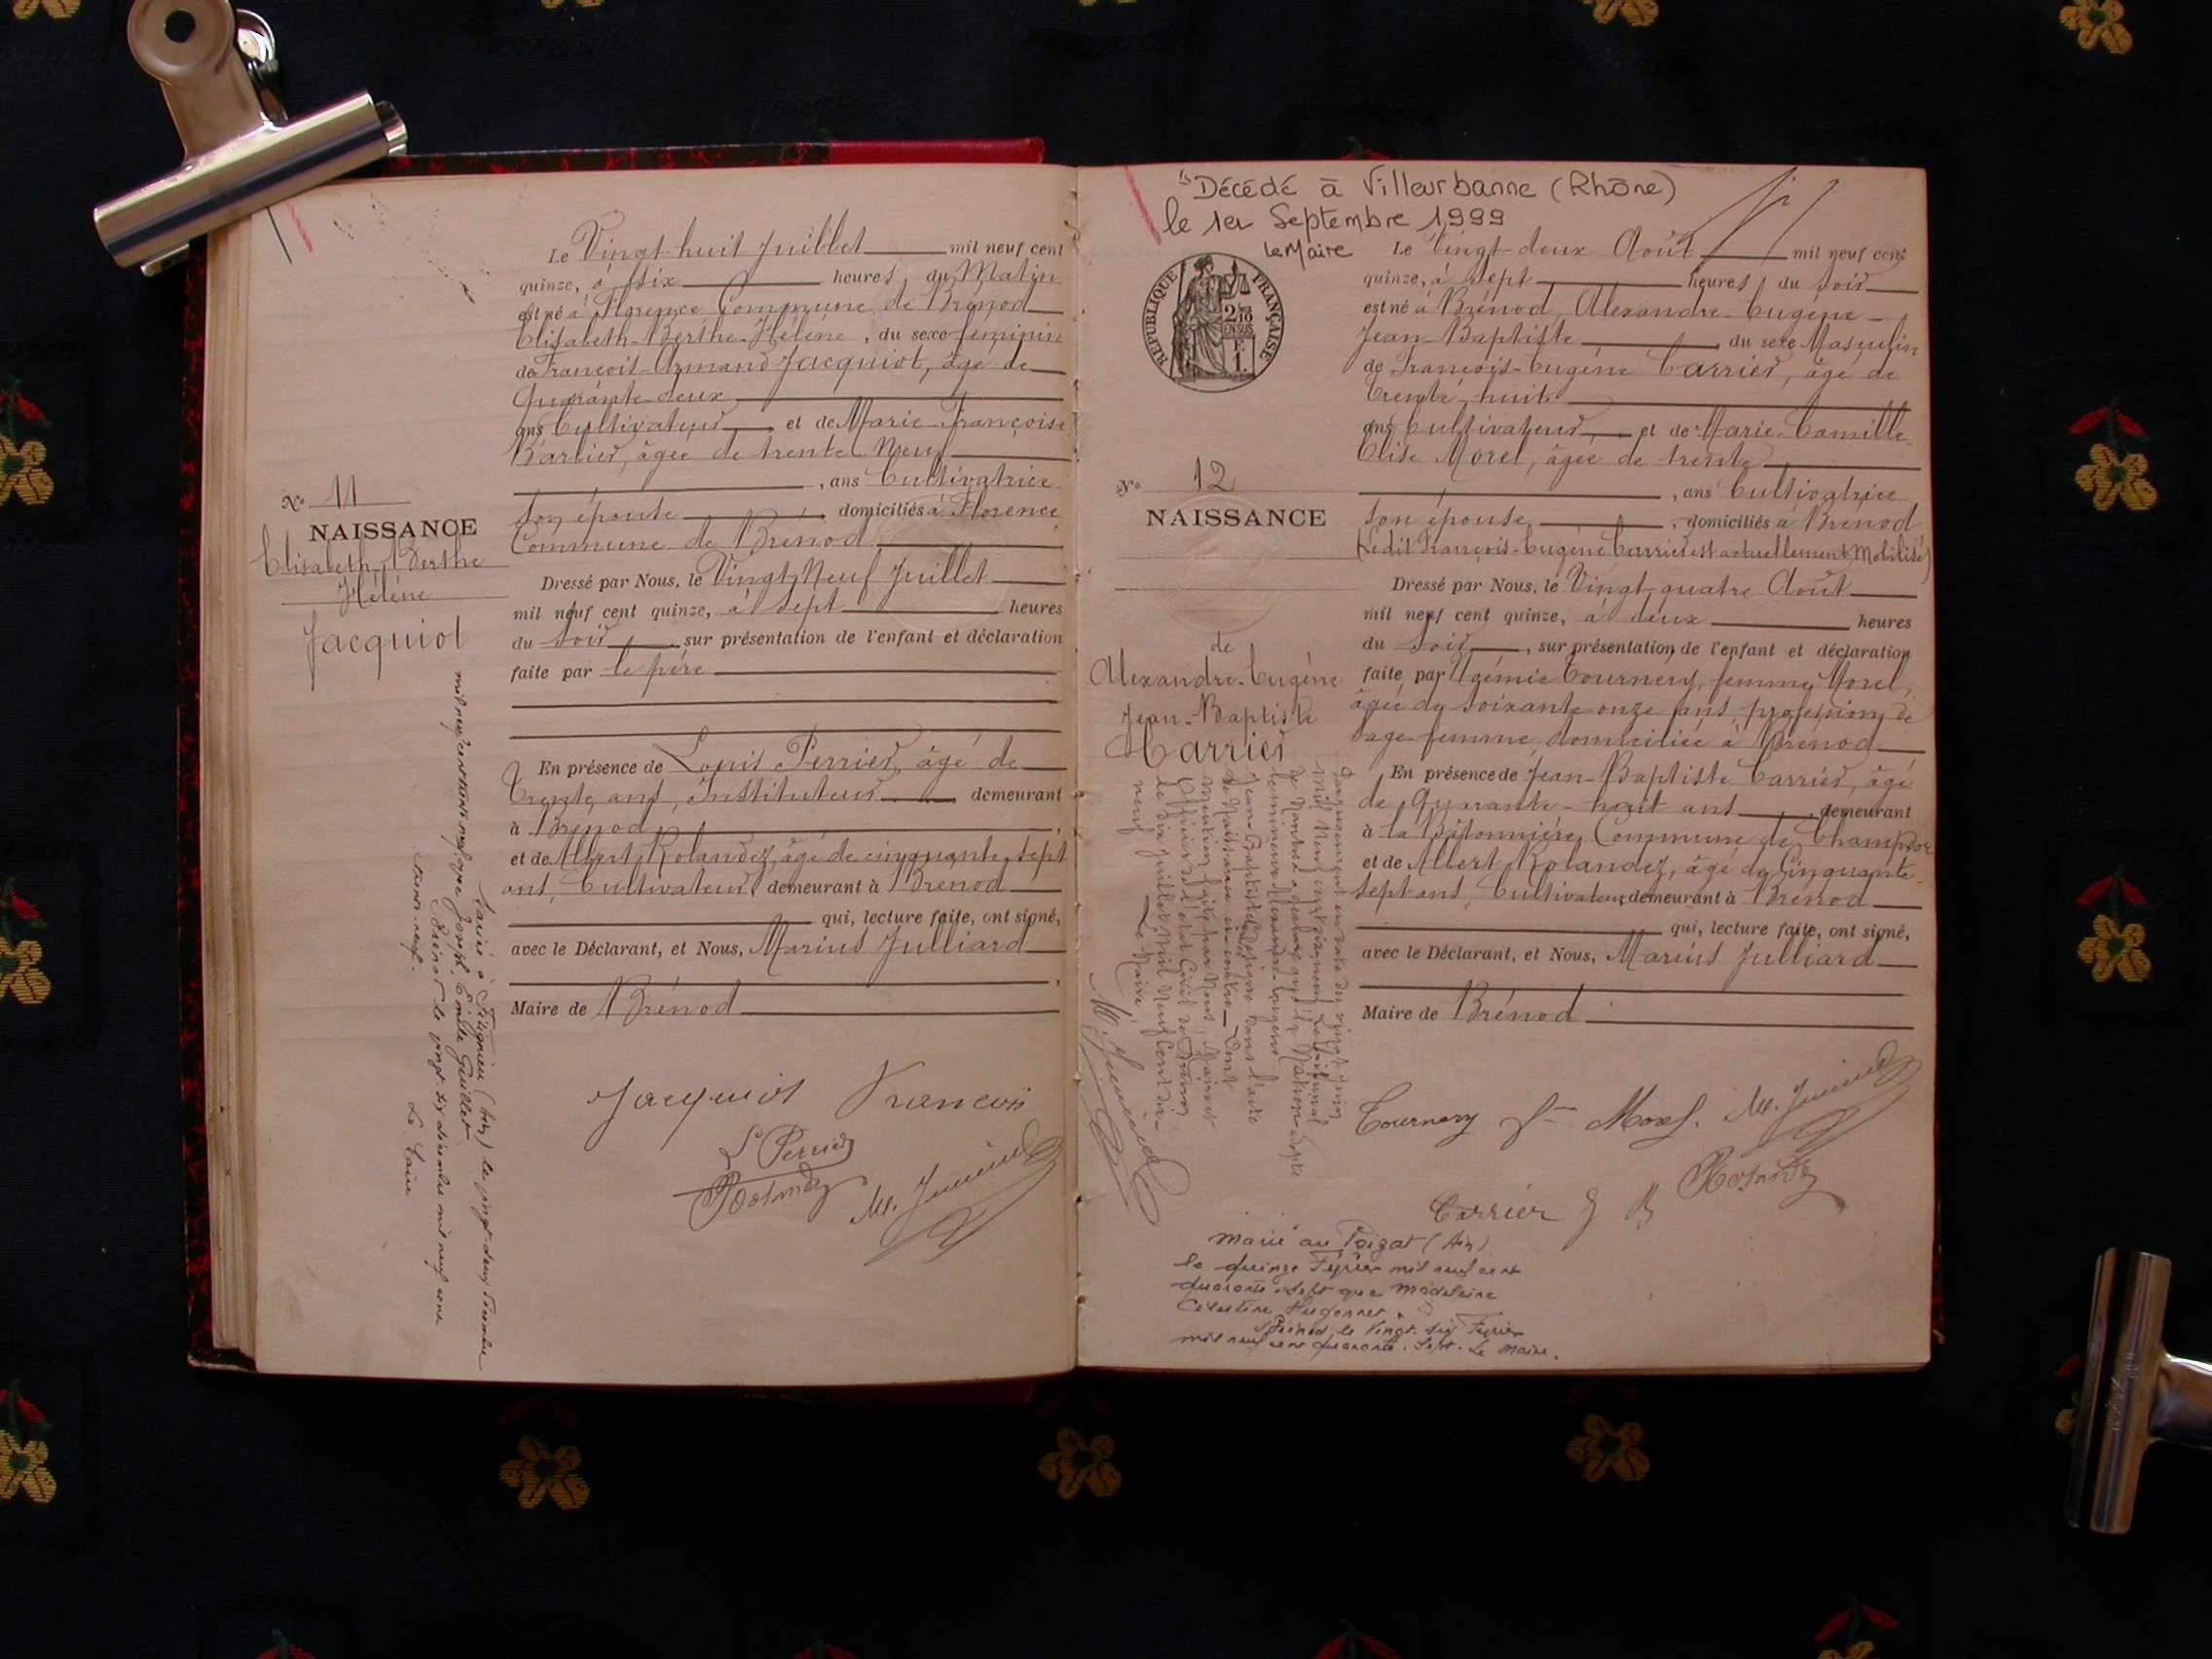 Le Vingt-huit Juillet mil neuf cent
quinze, à six heures du Matin
est né à Florence Commune de Brénod
Elisabeth-Berthe-Hélène, du sexe féminin
de François-Armand Jacquiot, âgé de
Quarante-deux
ans Cultivateur et de Marie-Françoise
âgée de trente Neuf
, ans Cultivatrice
son épouse domiciliés à Florence
Commune de Brénod
Dressé par Nous, le Vingt Neuf Juillet
mil neuf cent quinze, à sept heures
du soir sur présentation de l'enfant et déclaration
faite par le père
En présence de Louis Perrier, âgé de
Trente ans, Instituteur demeurant
à Brénod
et de Albert Rolandez, âgé de cinquante-sept
ans, Cultivateur, demeurant à Brénod
qui, lecture faite, ont signé,
avec le Déclarant, et Nous, Marius Julliard
Maire de Brénod
Jacquiot François
L Perrier
Rolandez M. Julliard
No 11
NAISSANCE
Elisabeth-Berthe
Hélène
Jacquiot
le vingt-deux Décembre
mil neuf cent trente neuf, avec Joseph, Emile Guillet
Brénod le vingt-six décembre mil neuf cent
trente-neuf.
Le Maire
Décédé à Villeurbanne (Rhône)
le 1er Septembre 1999
le Maire
REPUBLIQUE FRANÇAISE
2/10
EN SUS
Le Vingt-deux Août mil neuf cent
quinze, à sept heures du soir
est né à Brénod, Alexandre-Eugène-
Jean-Baptiste du sexe Masculin
de François-Eugène Carrier, âgé de
trente-huit
ans Cultivateur, et de Marie-Camille
Elise Morel, âgée de trente
, ans Cultivatrice
son épouse, domiciliés à Brénod
(Ledit François-Eugène Carrier est actuellement Mobilisé)
Dressé par Nous, le Vingt-quatre Août
mil neuf cent quinze, à deux heures
du soir, sur présentation de l'enfant et déclaration
faite par Tournery, femme Morel,
âgée de soixante onze ans, profession de
sage-femme domiciliée à Brénod
En présence de Jean-Baptiste Carrier, âgé
de Quarante-huit ans, demeurant
à la Bâtonnière, Commune de Champdor
et de Albert Rolandez, âgé de Cinquante-
sept ans, Cultivateur, demeurant à Brénod
qui, lecture faite, ont signé,
avec le Déclarant, et Nous, Marius Julliard
Maire de Brénod
Tournery fme Morel. M. Julliard
Rolandez
Carrier J B
No 12
NAISSANCE
de
Alexandre-Eugène
Jean-Baptiste
Carrier
Par jugement en date du vingt juin
mil neuf cent dix neuf, le Tribunal
de Nantua a que la Nation adopte
le mineur Alexandre-Eugène
Jean-Baptiste désigné dans l'acte
de Naissance ci-contre. Dont
mention faite par Nous, Maire et
Officier de l'état Civil de Brénod
le dix juillet Mil Neuf Cent dix-
neuf. Le Maire,
M. Julliard
Marié au Poizat (Ain)
le quinze Février mil neuf cent
quarante-sept avec Madeleine
Célestine Hugonnet.
Brénod, le Vingt-six Février
mil neuf cent quarante-sept. Le Maire.